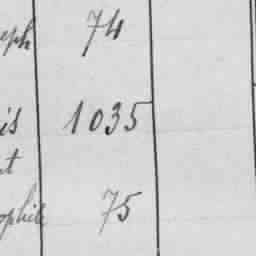 eph 74
is 1035
t
ophile 75